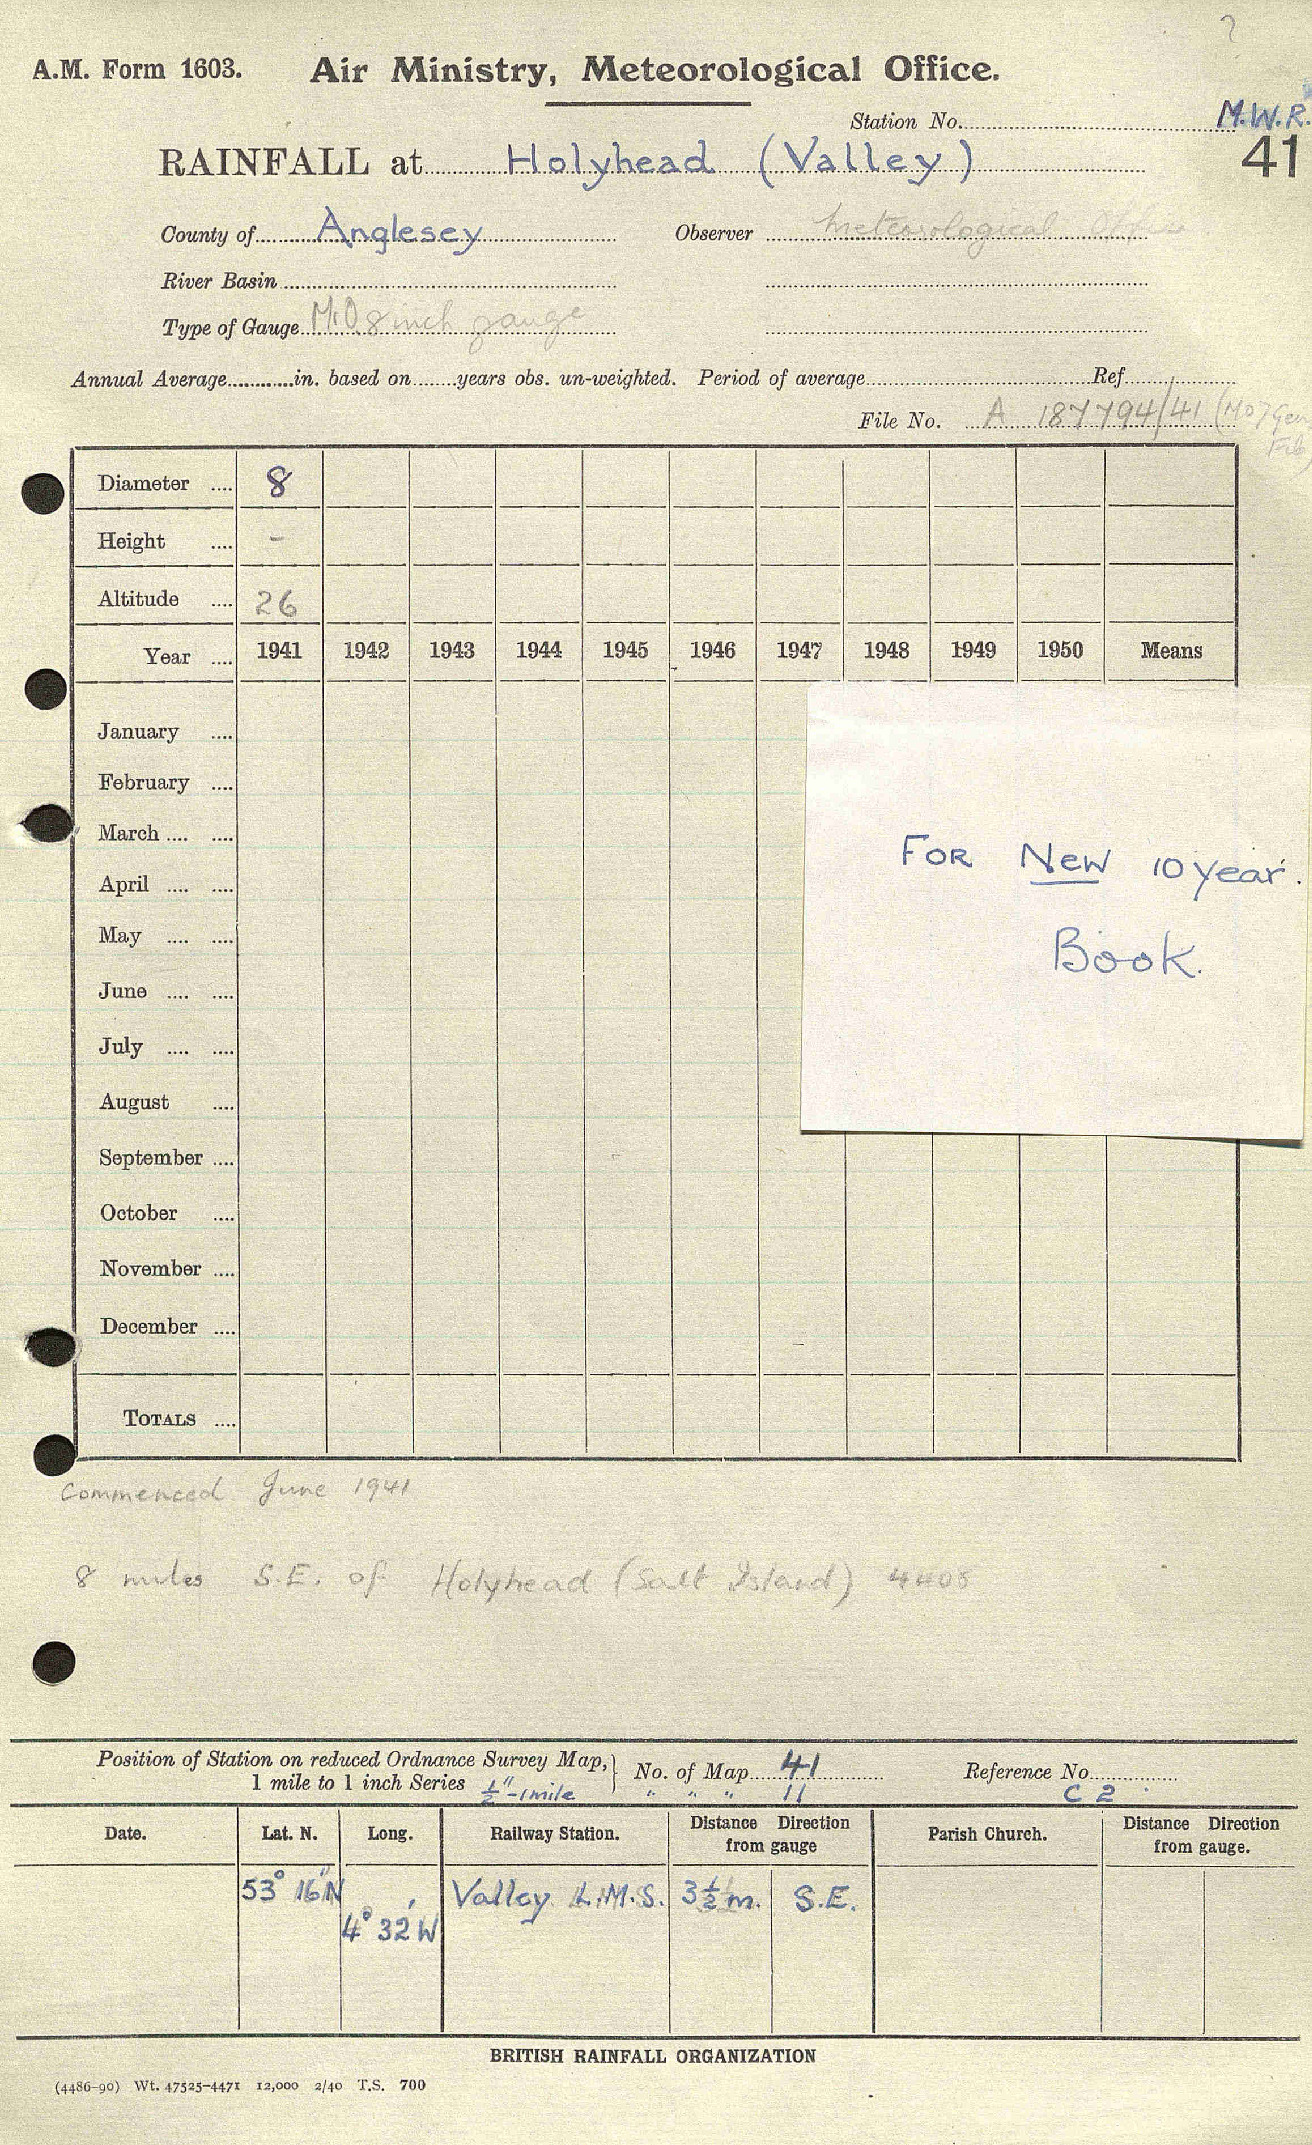 ?
A.M. Form 1603. Air Ministry, Meteorological Office.
Station No. M.W.R.
RAINFALL at Holyhead (Valley) 41
County of Anglesey Observer Meteorological Office
River Basin
Type of Gauge M.O. 8 inch gauge
Annual Average in. based on years obs. un-weighted. Period of average Ref.
File No. A 187794/41 (MO) Gen
Diameter .... 8
Height .... -
Altitude .... 26
Year .... 1941 1942 1943 1944 1945 1946 1947 1948 1949 1950 Means
January ....
February ....
March .... ....
April .... ....
May .... ....
June .... ....
July .... ....
August ....
September ....
October ....
November ....
December ....
TOTALS ....
FOR NEW 10 year.
Book.
Commenced June 1941
8 miles S.E. of Holyhead (Salt Island)
Position of Station on reduced Ordnance Survey Map, No. of Map 41 Reference No.
1 mile to 1 inch Series ½" - 1 mile " " " 11 C 2
Date. Lat. N. Long. Railway Station. Distance Direction from gauge Parish Church. Distance Direction from gauge.
53° 16" N 4° 32' W Valley L.M.S. 3½ m. S.E.
BRITISH RAINFALL ORGANIZATION
(4486-90) Wt. 47525-4471 12,000 2/40 T.S. 700